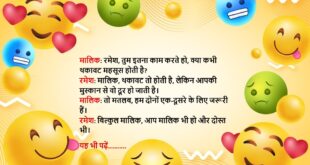 मालिक: रमेश, तुम इतना काम करते हो, क्या कभी
थकावट महसूस होती है?
रमेश: मालिक, थकावट तो होती है, लेकिन आपकी
मुस्कान से वो दूर हो जाती है।
मालिक: तो मतलब, हम दोनों एक-दूसरे के लिए जरूरी
हैं।
रमेश: बिल्कुल मालिक, आप मालिक भी हो और दोस्त
भी।
यह भी पढ़ें...........